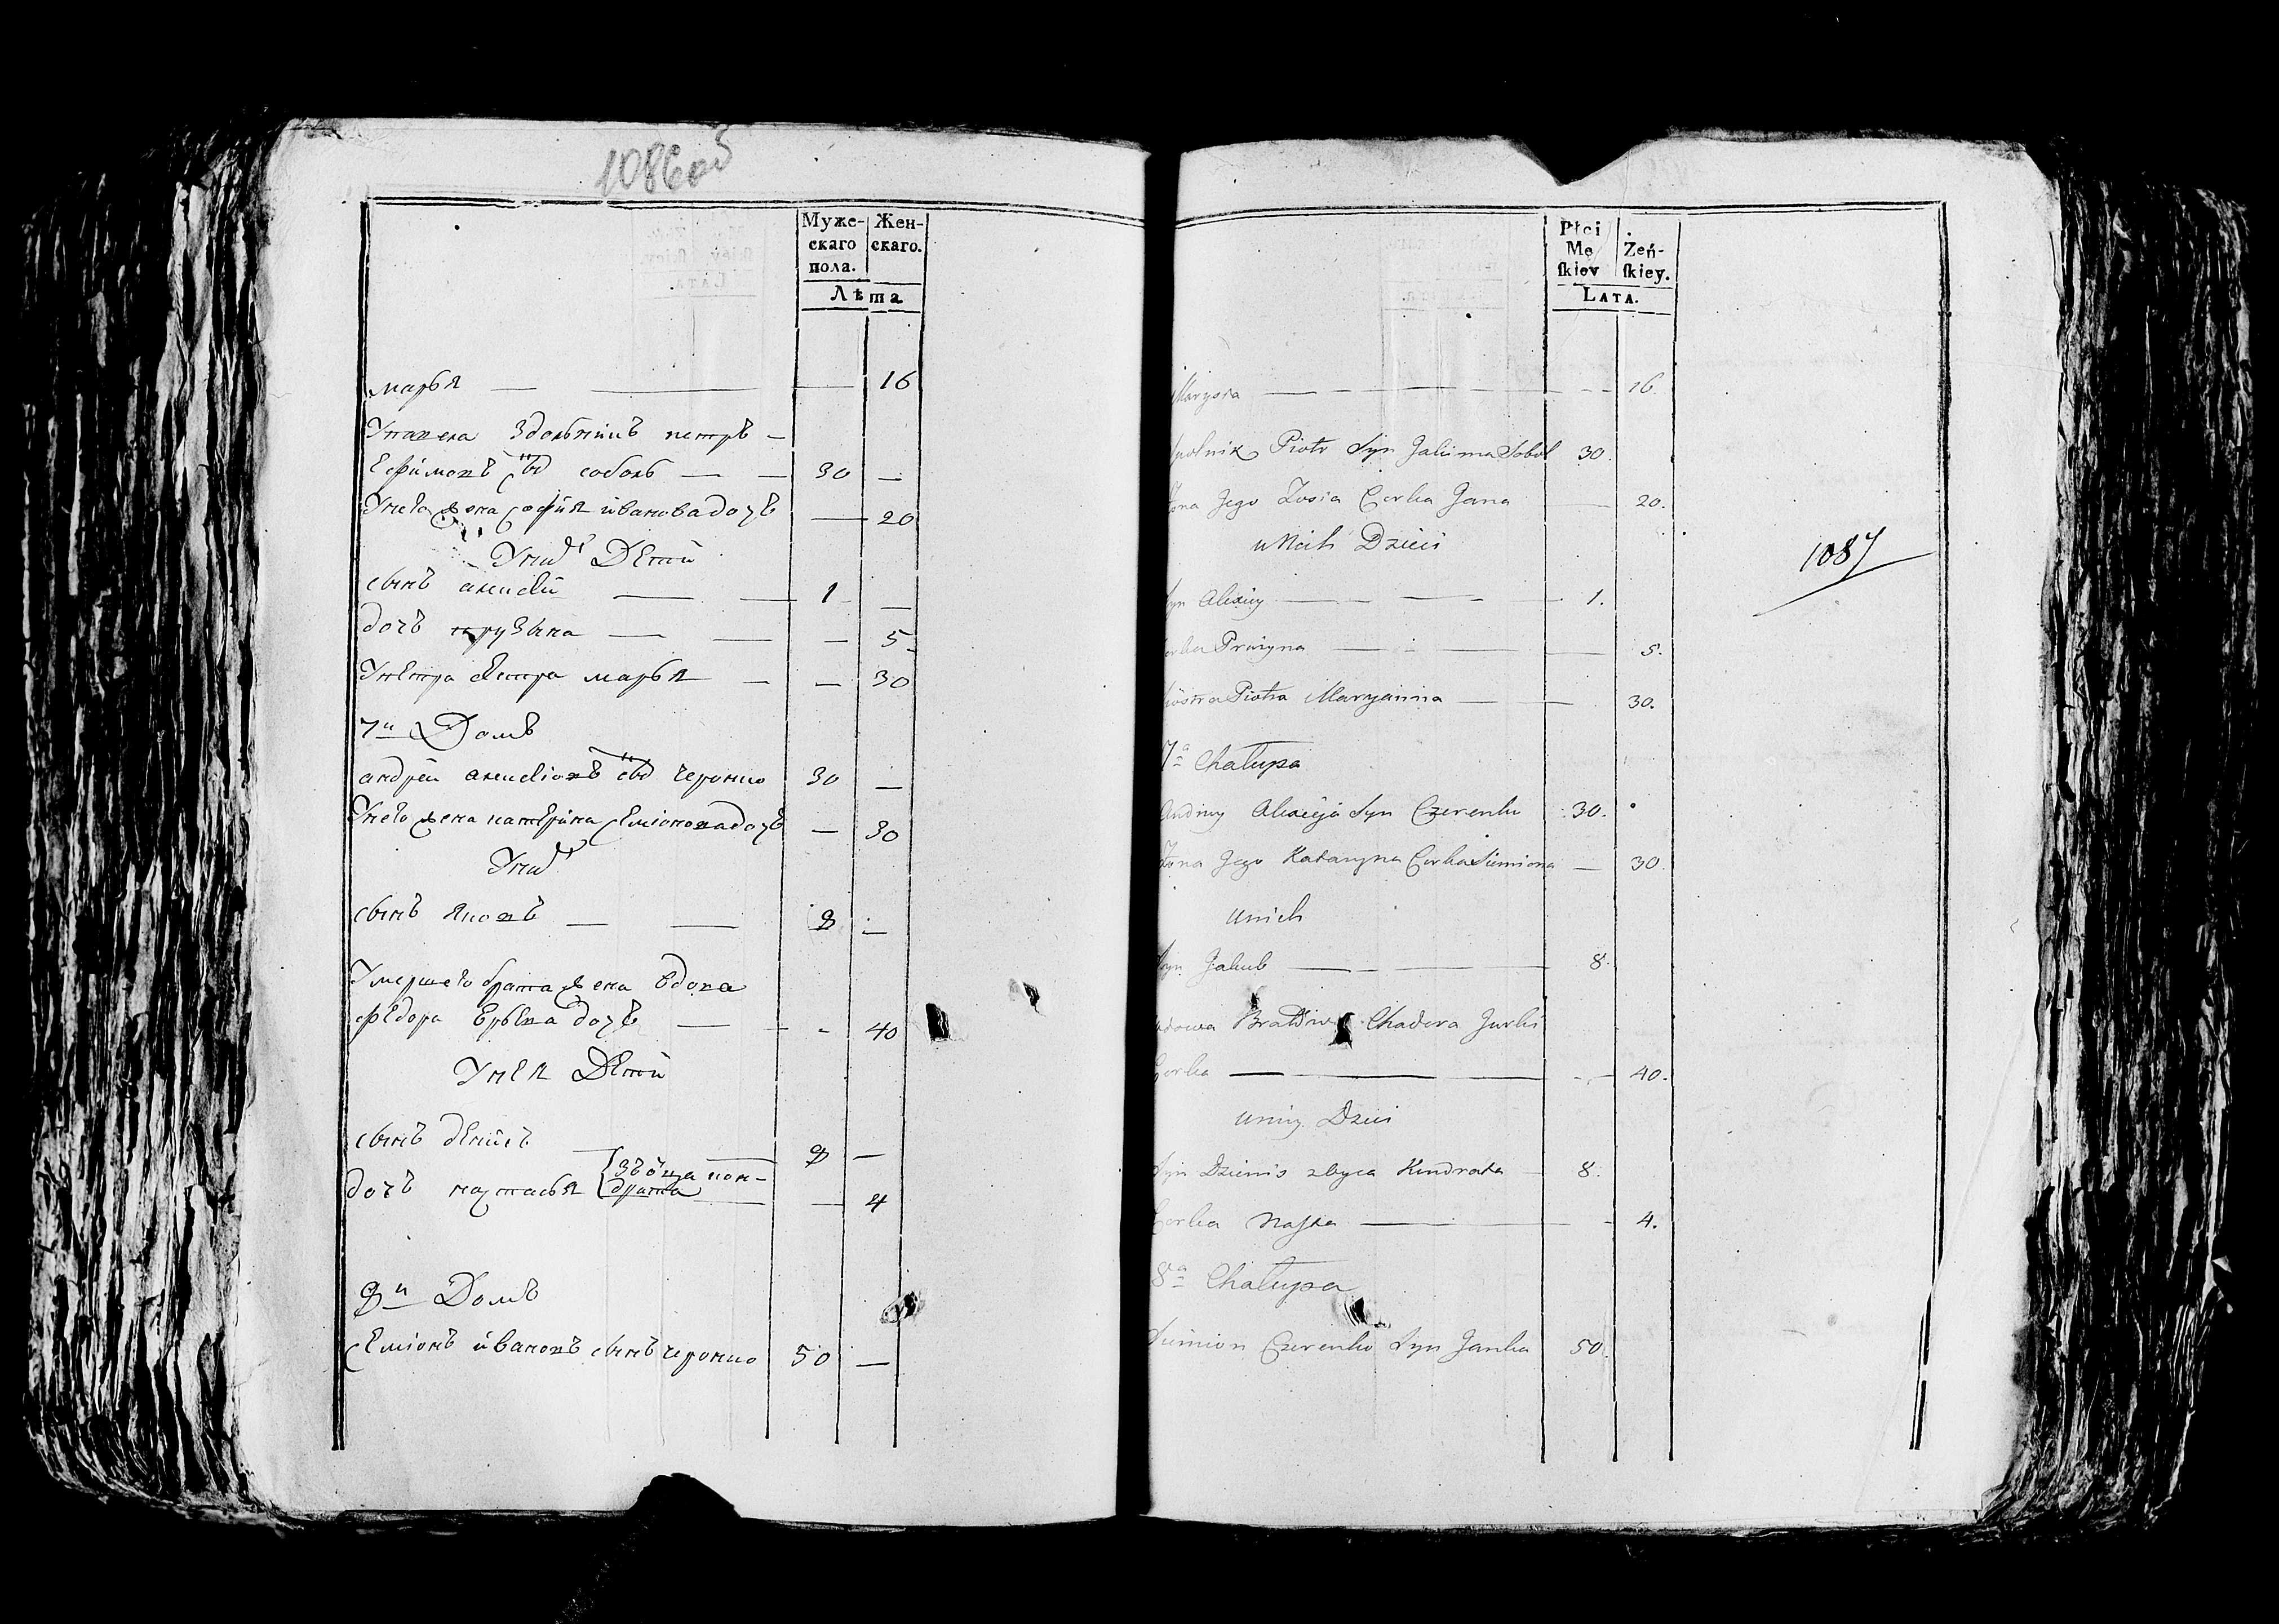 1086об
Муже-
скаго
пола.
Жен-
скаго.
Лѣта
марья — — — 16
Упавела Здольникъ петръ —
Ефимовъ снъ соболь — — 30 —
Унего жена софия иванова дочь — 20
Унихъ Дети
сынъ алексей — — 1 —
дочь прузына — — — 5
Упетра сестра марья — — 30
7й Домъ
андрей алексіовъ снъ черонко 30 —
Унего жена катерина семіонова дочь — 30
Унихъ
сынъ яковъ — — 8 —
Умершего брата жена вдова
федора дочь — — - 40
Унея Дети
сынъ денисъ — — 8 —
зъ отца кон-
дочь настасья драта — — 4
8й Домъ
семіонъ ивановъ сынъ черонко 50 —
Płci
Mę
skiey
Żeń-
skiey.
LATA.
Marysia — — — — 16.
Piotr Syn Jakima Sobol 30.
Żona Jego Zosia Corka Jana — 20.
u Nich Dzieci
Syn Alexiey — — — 1.
Corka Pruzyna — — — 5.
Siostra Piotra Maryanna — — 30.
1087
7a Chałupa
Andrey Alexieja Syn Czerenko 30.
Żona Jego Katarzyna Corka Siemiona — 30.
u nich
Syn Jakub — — — 8.
Wdowa Chadora Jurki
Corka — — — 40.
u niey Dzieci
Syn Dzienis z oyca Kondrata — 8.
Corka Nastka — — 4.
8a Chałupa
Siemion Czerenko Syn Janka 50.